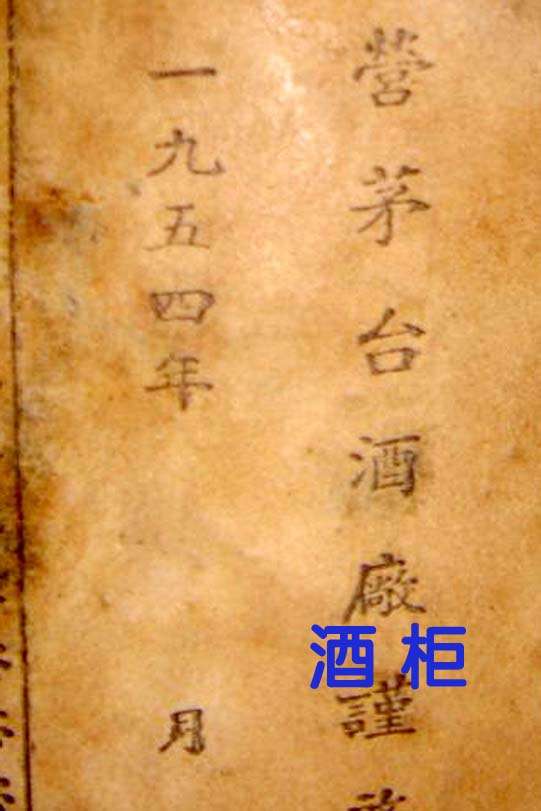 營茅台酒廠謹
一九五四年 月
酒柜